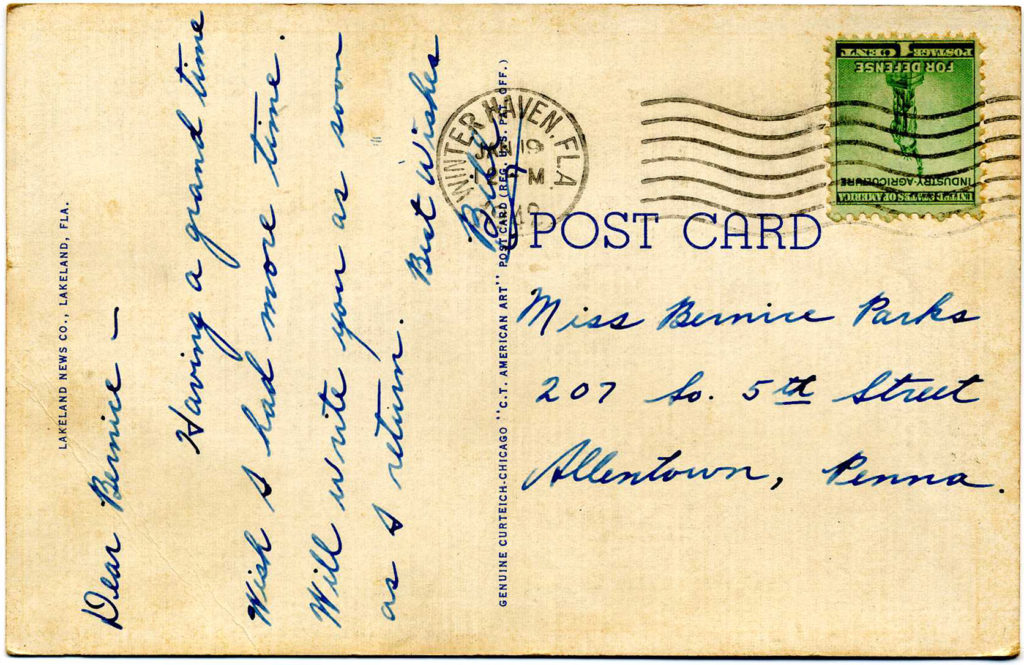 LAKELAND NEWS CO., LAKELAND, FLA.
Dear Bernice —
Having a grand time
Wish I had more time.
Will write you as soon
as I return.
Best Wishes
GENUINE CURTEICH-CHICAGO "C.T. AMERICAN ART" POST CARD (REG. U.S. PAT. OFF.)
WINTER HAVEN, FLA.
JAN 19
PM
POST CARD
UNITED STATES OF AMERICA
INDUSTRY AGRICULTURE
FOR DEFENSE
POSTAGE 1 CENT
Miss Bernice Parks
207 So. 5th Street
Allentown, Penna.